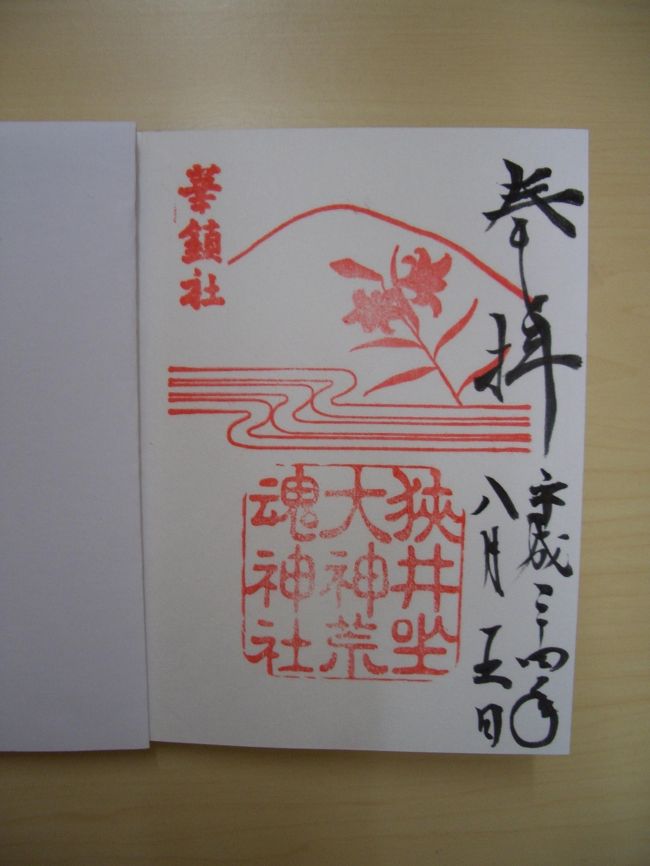 奉拝
平成二十四年
八月五日
狹井坐
大神荒
魂神社
華鎮社